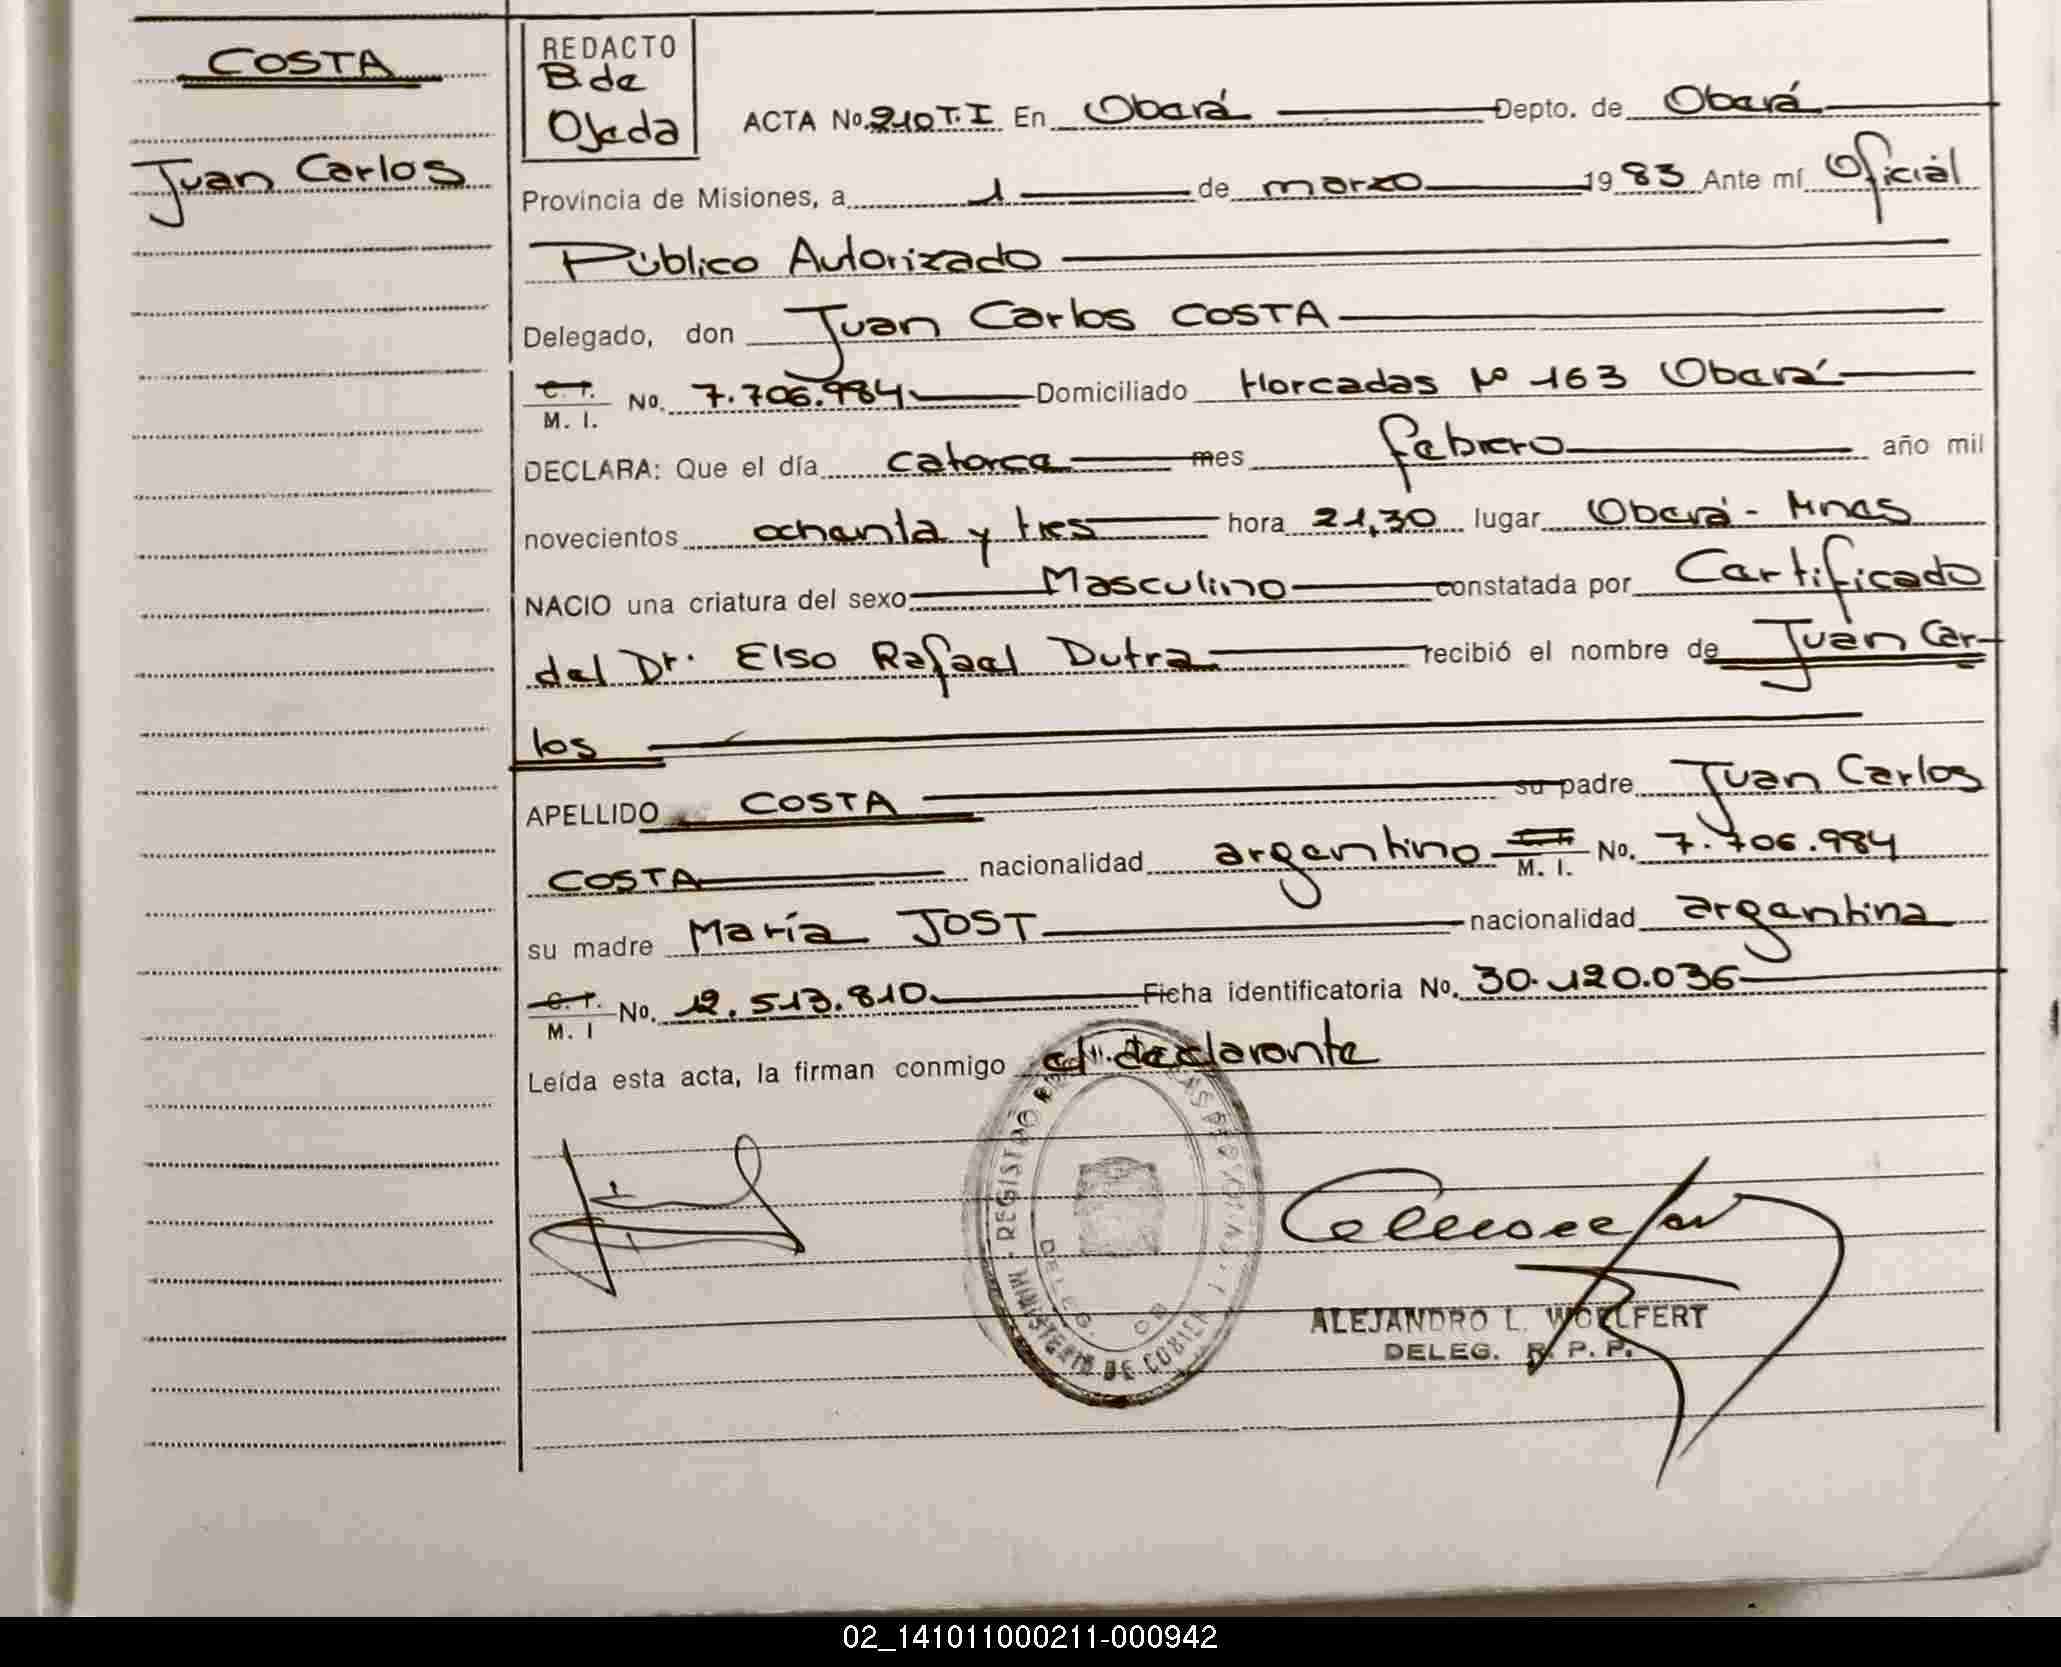 COSTA
Juan Carlos
REDACTO
B. de
Ojeda
ACTA No. 210 T.I En Oberá Depto. de Oberá
Provincia de Misiones, a 1 de marzo 1983 Ante mí Oficial
Público Autorizado
Delegado, don Juan Carlos COSTA
C. I.
M. I. No. 7.706.984 Domiciliado Horcadas Nº 163 Oberá
DECLARA: Que el día catorce mes febrero año mil
novecientos ochenta y tres hora 21,30 lugar Oberá - Mnes
NACIO una criatura del sexo Masculino constatada por Certificado
del Dr. Elso Rafael Dutra recibió el nombre de Juan Car-
los
APELLIDO COSTA su padre Juan Carlos
COSTA nacionalidad argentino C. I. M. I. No. 7.706.984
su madre María JOST nacionalidad argentina
C. I.
M. I No. 12.513.810 Ficha identificatoria No. 30.120.036
Leída esta acta, la firman conmigo el declarante
REGISTRO
MINISTERIO DE GOBIER
DELEG. OB
ALEJANDRO L. WOELFERT
DELEG. R. P. P.
02_141011000211-000942